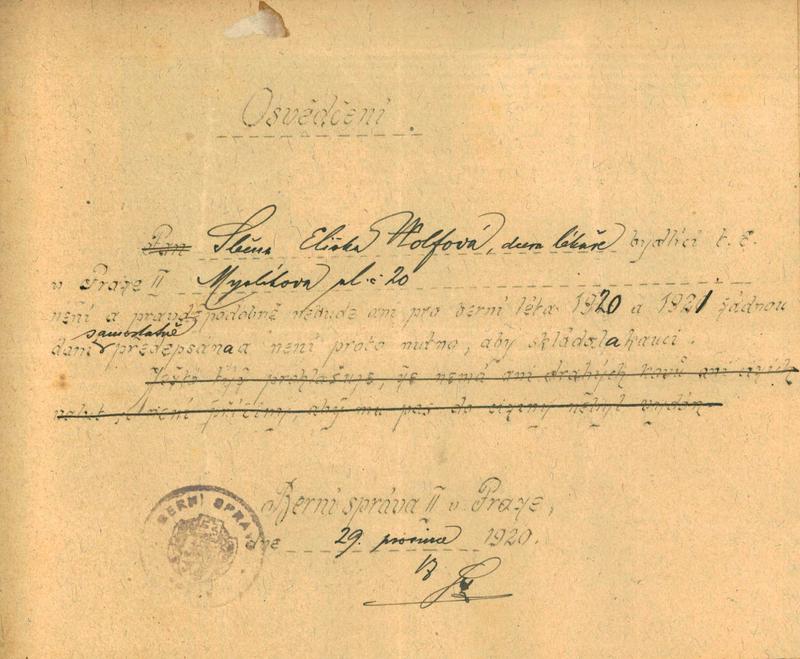 Osvědčení.
Pan Slečna Eliška Wolfová, dcera lékaře bydlící t. č.
v Praze II Myslíkova ul. č 20
není a pravděpodobně nebude ani pro berní léta 1920 a 1921 žádnou
samostatně
daní předepsána a není proto nutno, aby skládala kauci.
Ještě týž prohlašuje, že nemá ani drahých kovů ani cizích
valut, není příčiny, aby mu pas do ciziny nebyl vydán.
Berní správa II v Praze,
dne 29. prosince 1920.
BERNÍ SPRÁVA